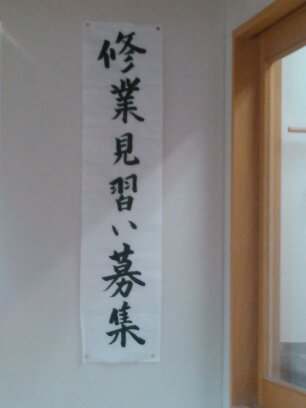 修業見習い募集